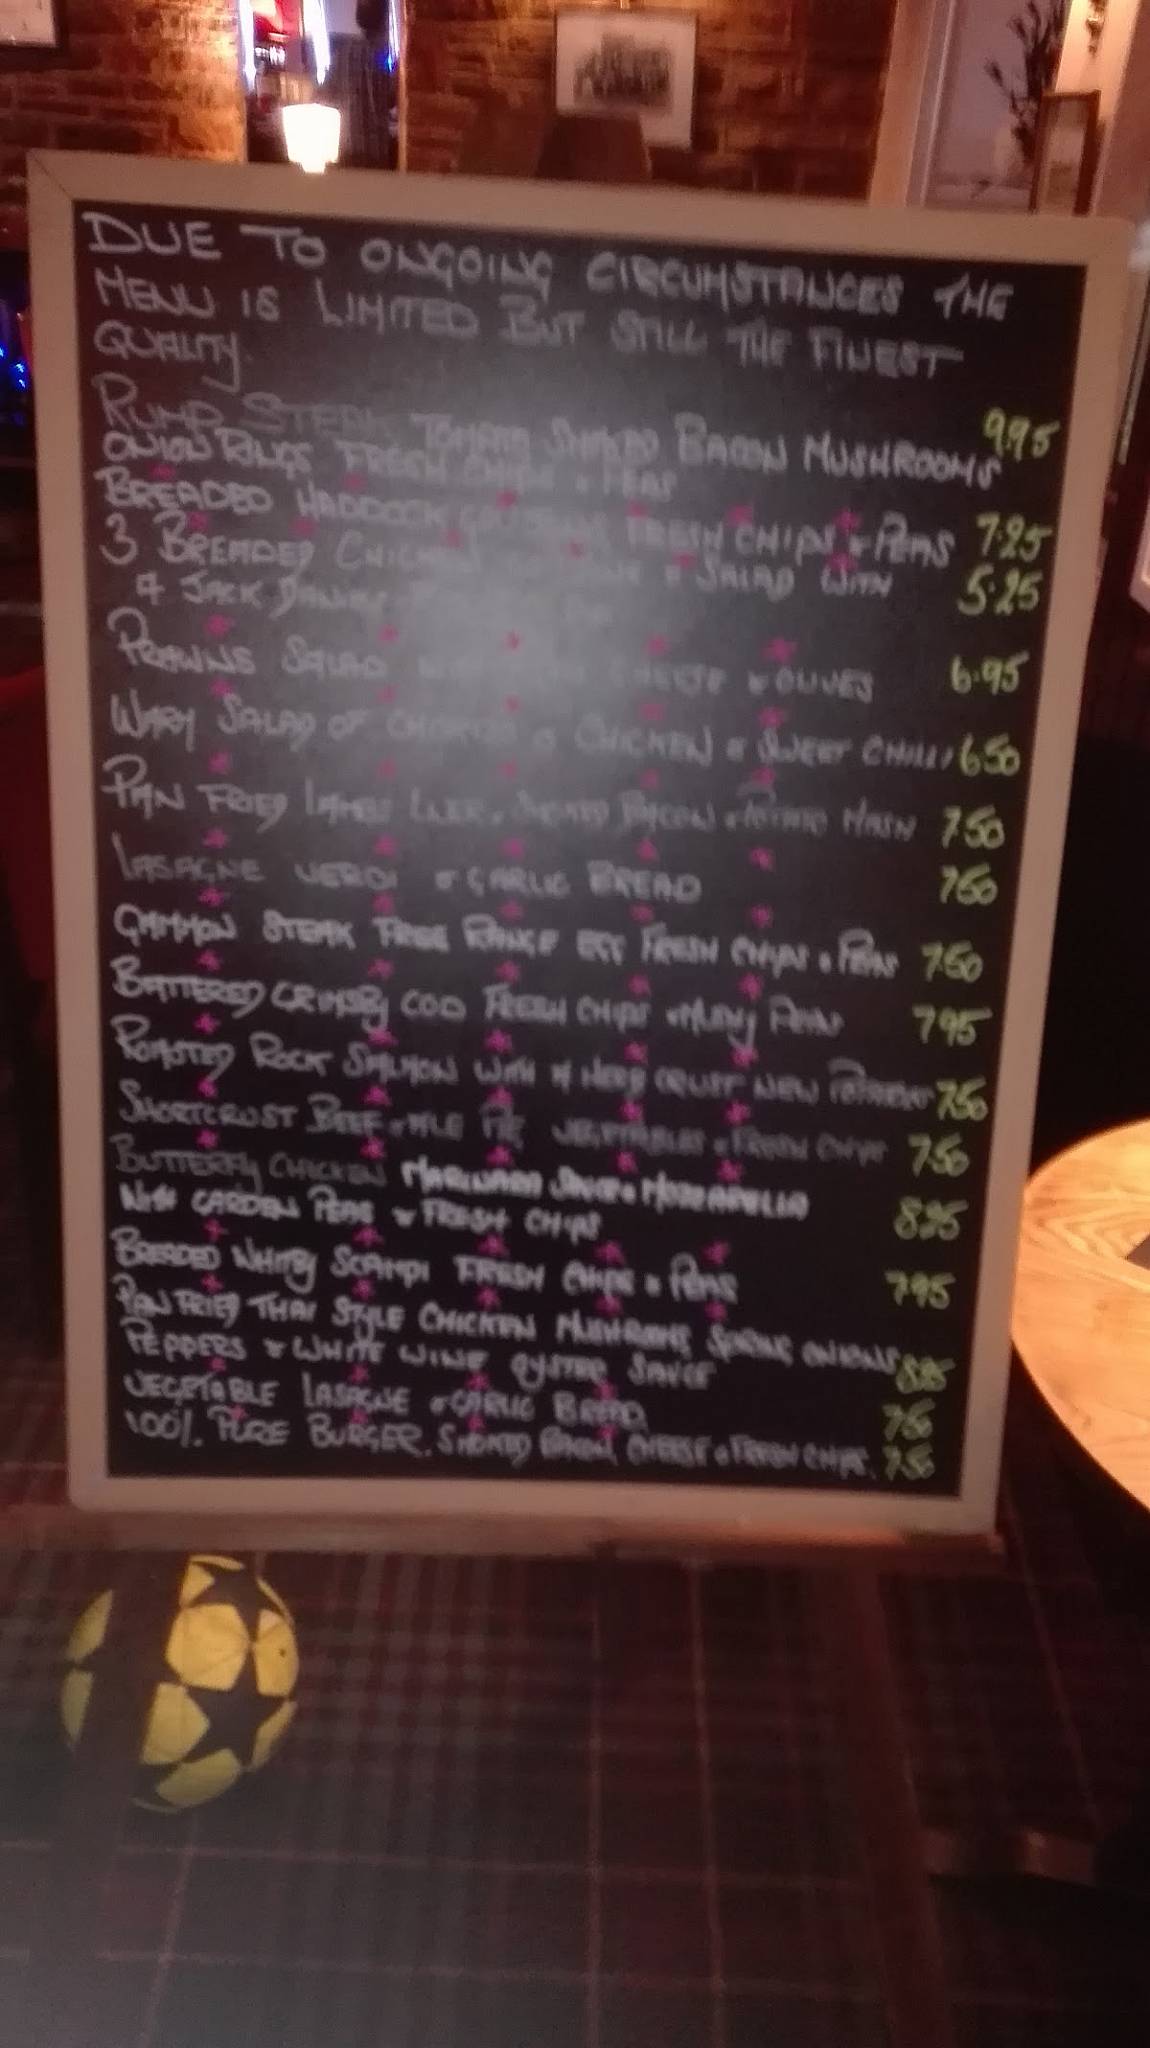 DUE TO ONGOING CIRCUMSTANCES THE
MENU IS LIMITED BUT STILL THE FINEST
QUALITY.
RUMP STEAK TOMATO SMOKED BACON MUSHROOMS 9.95
ONION RINGS FRESH CHIPS & PEAS
BREADED HADDOCK FRESH CHIPS & PEAS 7.25
3 BREADED CHICKEN & SALAD WITH 5.25
A JACK DANIELS
PRAWNS SALAD CHEESE & OLIVES 6.95
WARM SALAD OF CHORIZO & CHICKEN & SWEET CHILLI 6.50
PAN FRIED LAMBS LIVER, SMOKED BACON & POTATO MASH 7.50
LASAGNE VERDI & GARLIC BREAD 7.50
GAMMON STEAK FREE RANGE EGG FRESH CHIPS & PEAS 7.50
BATTERED GRIMSBY COD FRESH CHIPS & MUSHY PEAS 7.95
ROASTED ROCK SALMON WITH A HERB CRUST NEW POTATOES 7.50
SHORTCRUST BEEF & ALE PIE VEGETABLES & FRESH CHIPS 7.50
BUTTERFLY CHICKEN MARINARA SAUCE & MOZZARELLA 8.95
WITH GARDEN PEAS & FRESH CHIPS
BREADED WHITBY SCAMPI FRESH CHIPS & PEAS 7.95
PAN FRIED THAI STYLE CHICKEN MUSHROOMS, SPRING ONIONS 8.95
PEPPERS & WHITE WINE OYSTER SAUCE
VEGETABLE LASAGNE & GARLIC BREAD 7.50
100% PURE BURGER. SMOKED BACON, CHEESE & FRESH CHIPS. 7.50